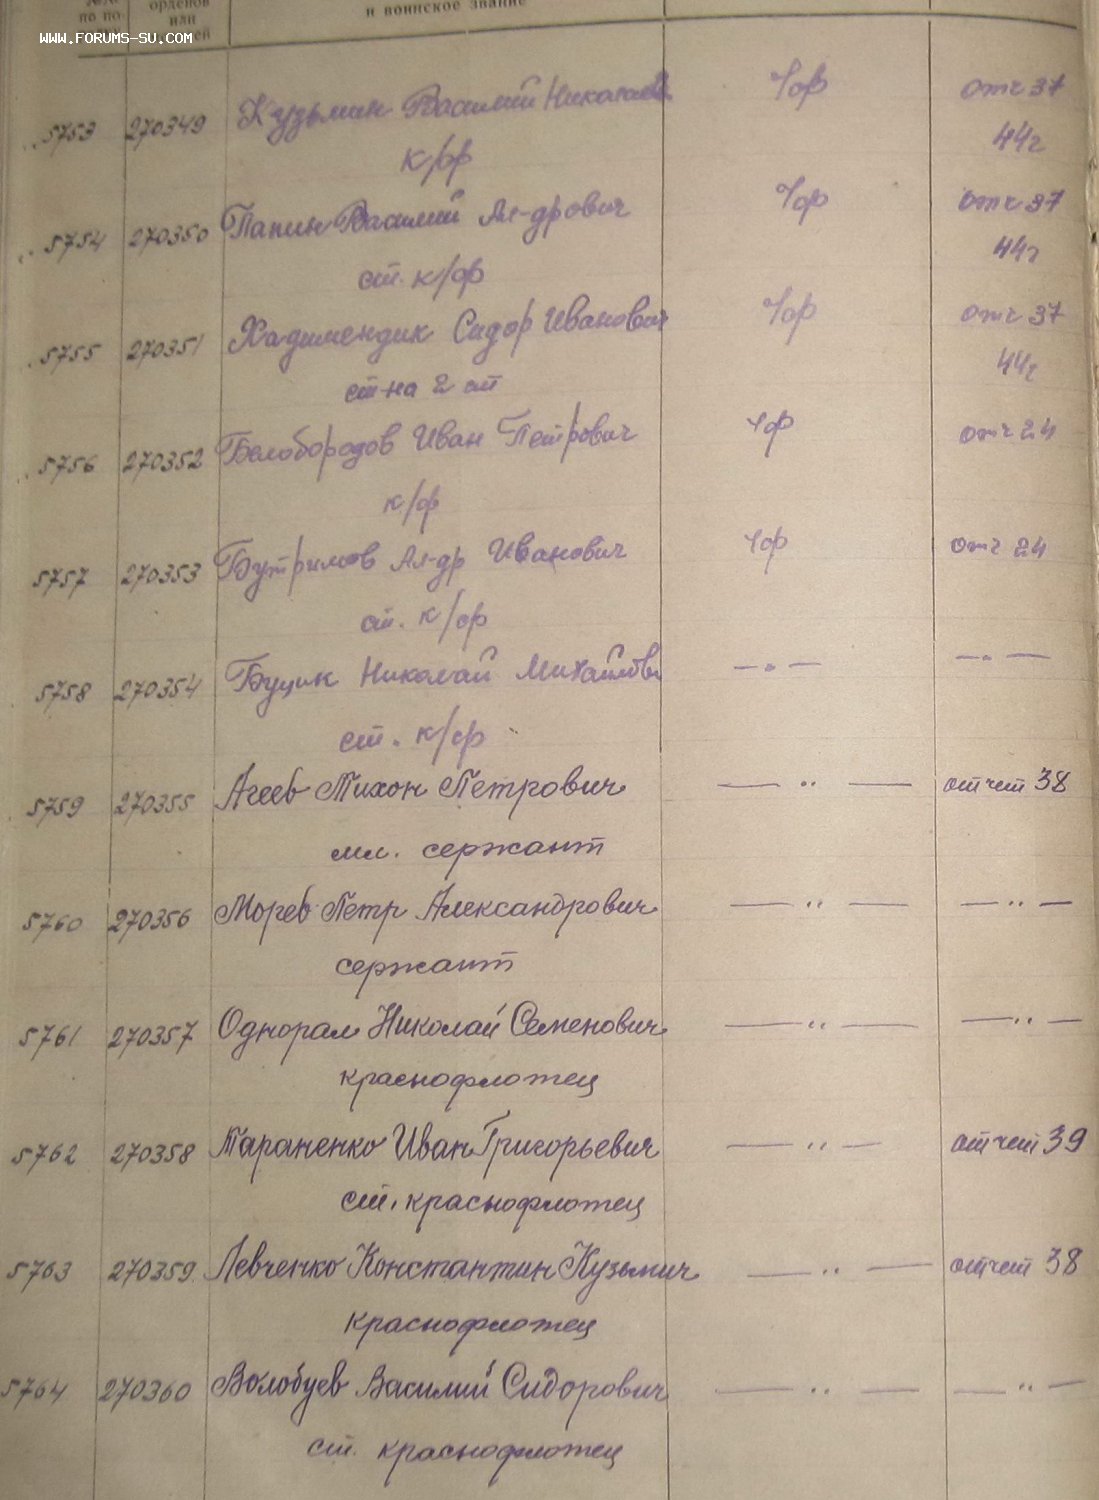 по по-
орденов
или
и воинское звание
WWW.FORUMS-SU.COM
5753 270349 Кузьмин Василий Николаев ЧФ отч 37
к/ф 44г
5754 270350 Папин Василий Ал-дрович ЧФ отч 37
ст. к/ф 44г
5755 270351 Хадимендик Сидор Иванович ЧФ отч 37
ст-на 2 ст 44г
5756 270352 Белобородов Иван Петрович ЧФ отч 24
к/ф
5757 270353 Бутримов Ал-др Иванович ЧФ отч 24
ст. к/ф
5758 270354 Буцик Николай Михайлов — „ — — „ —
ст. к/ф
5759 270355 Агеев Тихон Петрович — „ — отчет 38
мл. сержант
5760 270356 Морев Петр Александрович — „ — — „ —
сержант
5761 270357 Однорал Николай Семенович — „ — — „ —
краснофлотец
5762 270358 Тараненко Иван Григорьевич — „ — отчет 39
ст. краснофлотец
5763 270359 Левченко Константин Кузьмич — „ — отчет 38
краснофлотец
5764 270360 Волобуев Василий Сидорович — „ — — „ —
ст. краснофлотец